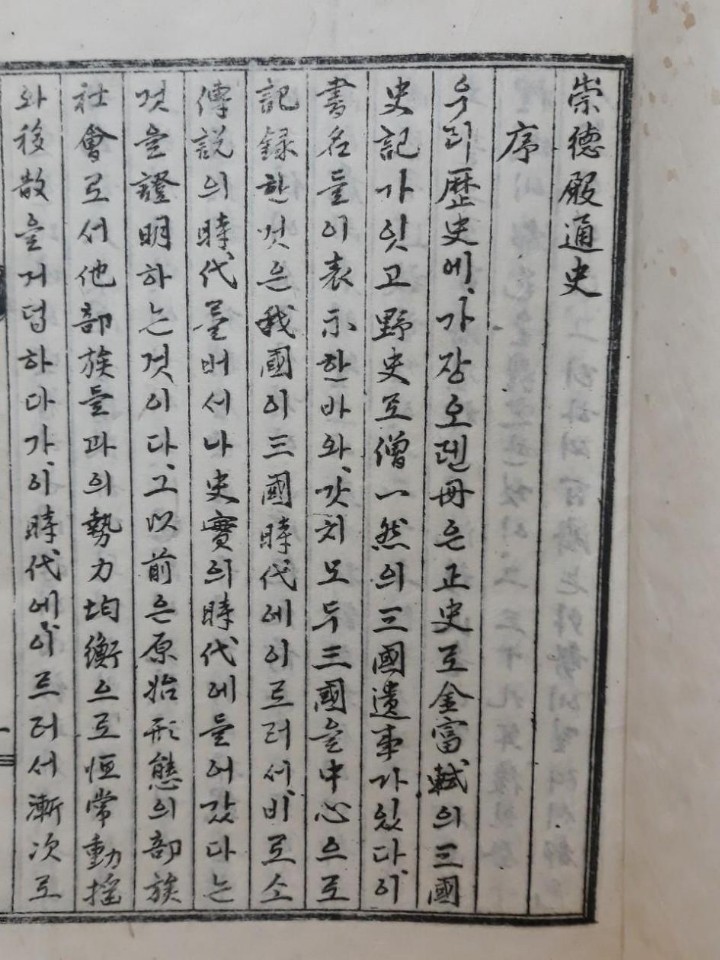 崇德殿通史
序
우리歷史에、가장오랜冊은正史로金富軾의三國
史記가잇고野史로僧一然의三國遺事가있다이
書名들이表示한바와、갓치모두三國을中心으로
記錄한것은我國이三國時代에이르러서비로소
傳說의時代를버서나史實의時代에들어갔다는
것을證明하는것이다、그以前은原始形態의部族
社會로서他部族들과의勢力均衡으로恒常動搖
와移散을거덥하다가、이時代에이르러서漸次로